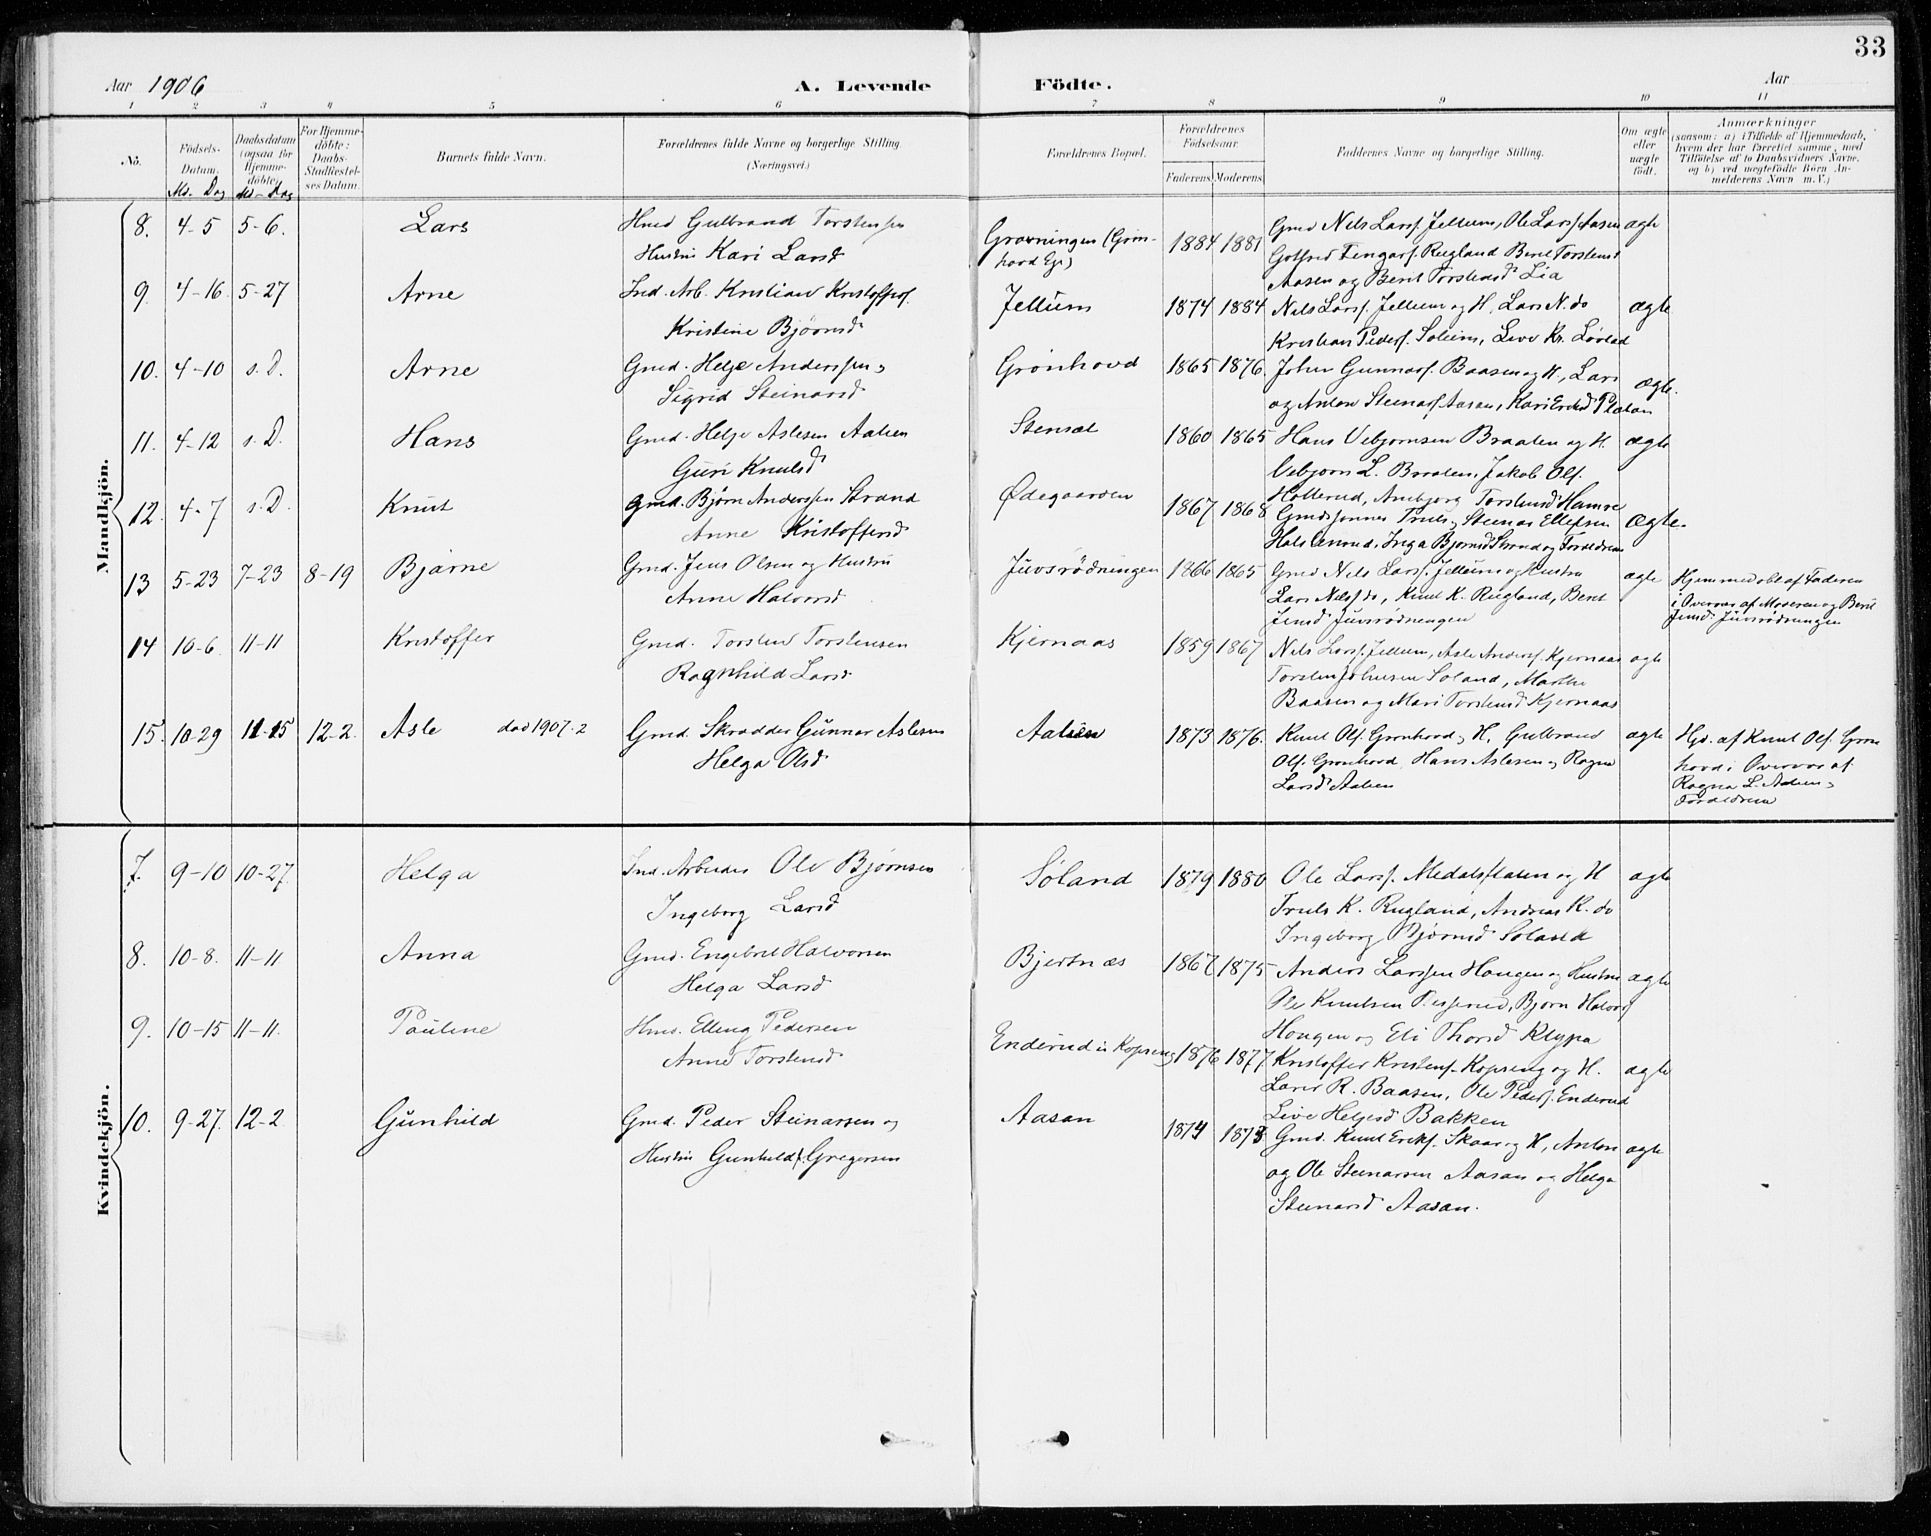 33
Aar 1906 A. Levende Födte. Aar
1 2 3 4 5 6 7 8 9 10 11
No. Födsels-Datum. Daabsdatum (ogsaa for Hjemme-döbte). For Hjemme-döbte: Daabs-Stadfæstel-ses Datum. Barnets fulde Navn. Forældrenes fulde Navne og borgerlige Stilling. (Næringsvei.) Forældrenes Bopæl. Forældrenes Födselsaar. Faderens. Moderens. Faddernes Navne og borgerlige Stilling. Om ægte eller uægte födt. Anmærkninger (saasom: a) i Tilfælde af Hjemmedaab, hvem der har forrettet samme, med Tilföielse af to Daabsvidners Navne, og b) ved uægtefödte Börn An-melderens Navn m. V.)
Md. Dag Md. Dag
Mandkjön.
8. 4-5 5-6. Lars Hmd Gulbrand Torstensen Gravningen (Grøn- 1884 1881 Gmd Nels Larsf. Jellum, Ole Larsf Aasen ægte
Hustru Kari Larsd hovd Eje) Gotfred Fengarf. Rugland Berit Torstensd
Aasen og Berit Torstensd Lia
9. 4-16. 5-27 Arne Ind. Arb. Kristian Kristoffersf. Jellum 1874 1884 Nils Larsf. Jellum og H, Lars N. do ægte
Kristine Bjørnsd Kristian Pedersf. Soleim, Live Kr. Løvlad
10. 4-10 s. D. Arne Gmd. Helge Anderssen, Grønhovd 1865 1876. John Gunnarsf. Baasen og H., Lars ægte.
Sigrid Steinarsd og Anton Steinarsf Aasan, Kari Eriksd Platan
11. 4-12 s. D. Hans Gmd. Helge Aslesen Aalien Stensæt 1860 1865 Hans Vebjørnsen Braaten og H. ægte
Guri Knutsd Vebjørn L. Braaten, Jakob Olf.
Holterud, Anbjørg Torstensd Hamre
12. 4-7 s. D. Knut Gmd. Bjørn Anderssen Strand Ødegaarden 1867 1868 Gmdssønnes Truls, Steinar Ellefsen ægte.
Anne Kristoffersd Halslenrud, Inga Bjørnsd Strand og Forældrene
13 5-23 7-23 8-19 Bjarne Gmd. Jens Olsen og Hustru Juvsrødningen 1866 1865 Gmd Nils Larsf. Jellum og Hustru ægte Hjemmedøbt af Faderen
Anne Halvorsd Lars Nilsf do, Knut K. Rugland, Berit i Overvær af Moderen og Berit
Jensd Juvsrødningen Jensd. Juvsrødningen
14 10-6 11-11 Kristoffer Gmd. Torsten Torstensen Kjernaas 1859 1867 Nels Larsf. Jellum, Asle Andersf. Kjernaas ægte
Ragnhild Larsd Torsten Johnsen Soland, Marthe
Baasen og Mari Torstensd Kjernaas
15. 10-29 11-15 12-2. Asle død 1907.2 Gmd. Skrædder Gunnar Aslesen Aalien 1873 1876. Knut Olf. Grønhovd, H, Gulbrand ægte Hjd. af Knut Olf. Grøn
Helga Olsd Olf. Grønhovd, Hans Aslesen og Ragna hovd i Overvær af
Larsd Aalien Ragna L. Aalien,
Forældrene
Kvindekjön.
7. 9-10 10-27. Helga Ind. Arbeider Ole Bjørnsen Søland 1879 1880 Ole Larsf. Medalsflaten og H ægte
Ingeborg Larsd Truls K. Rugland, Andreas K. do
Ingeborg Bjørnsd Søland
8. 10-8. 11-11 Anna Gmd. Engebret Halvorsen Bjertnæs 1867 1875 Anders Larssen Haugen og Hustru ægte
Helga Larsd Ole Knutsen Tesserud, Bjørn Halvorsf
Haugen og Eli Thorsd Klypa
9. 10-15 11-11. Pauline Hmd. Elling Pedersen Enderud u Kopseng 1876 1877 Kristoffer Kristensf. Kopseng og H. ægte
Anne Torstensd Lars R. Baasen, Ole Pedersf. Enderud
Live Helgesd Bakken
10. 9-27. 12-2 Gunhild Gmd. Peder Steinarsen og Aasan 1874 1873 Gmd. Knut Eriksf. Skaar og H, Anton ægte
Hustru Gunhild f. Gregersen og Ole Steinarsen Aasan og Helga
Steinarsd Aasan.